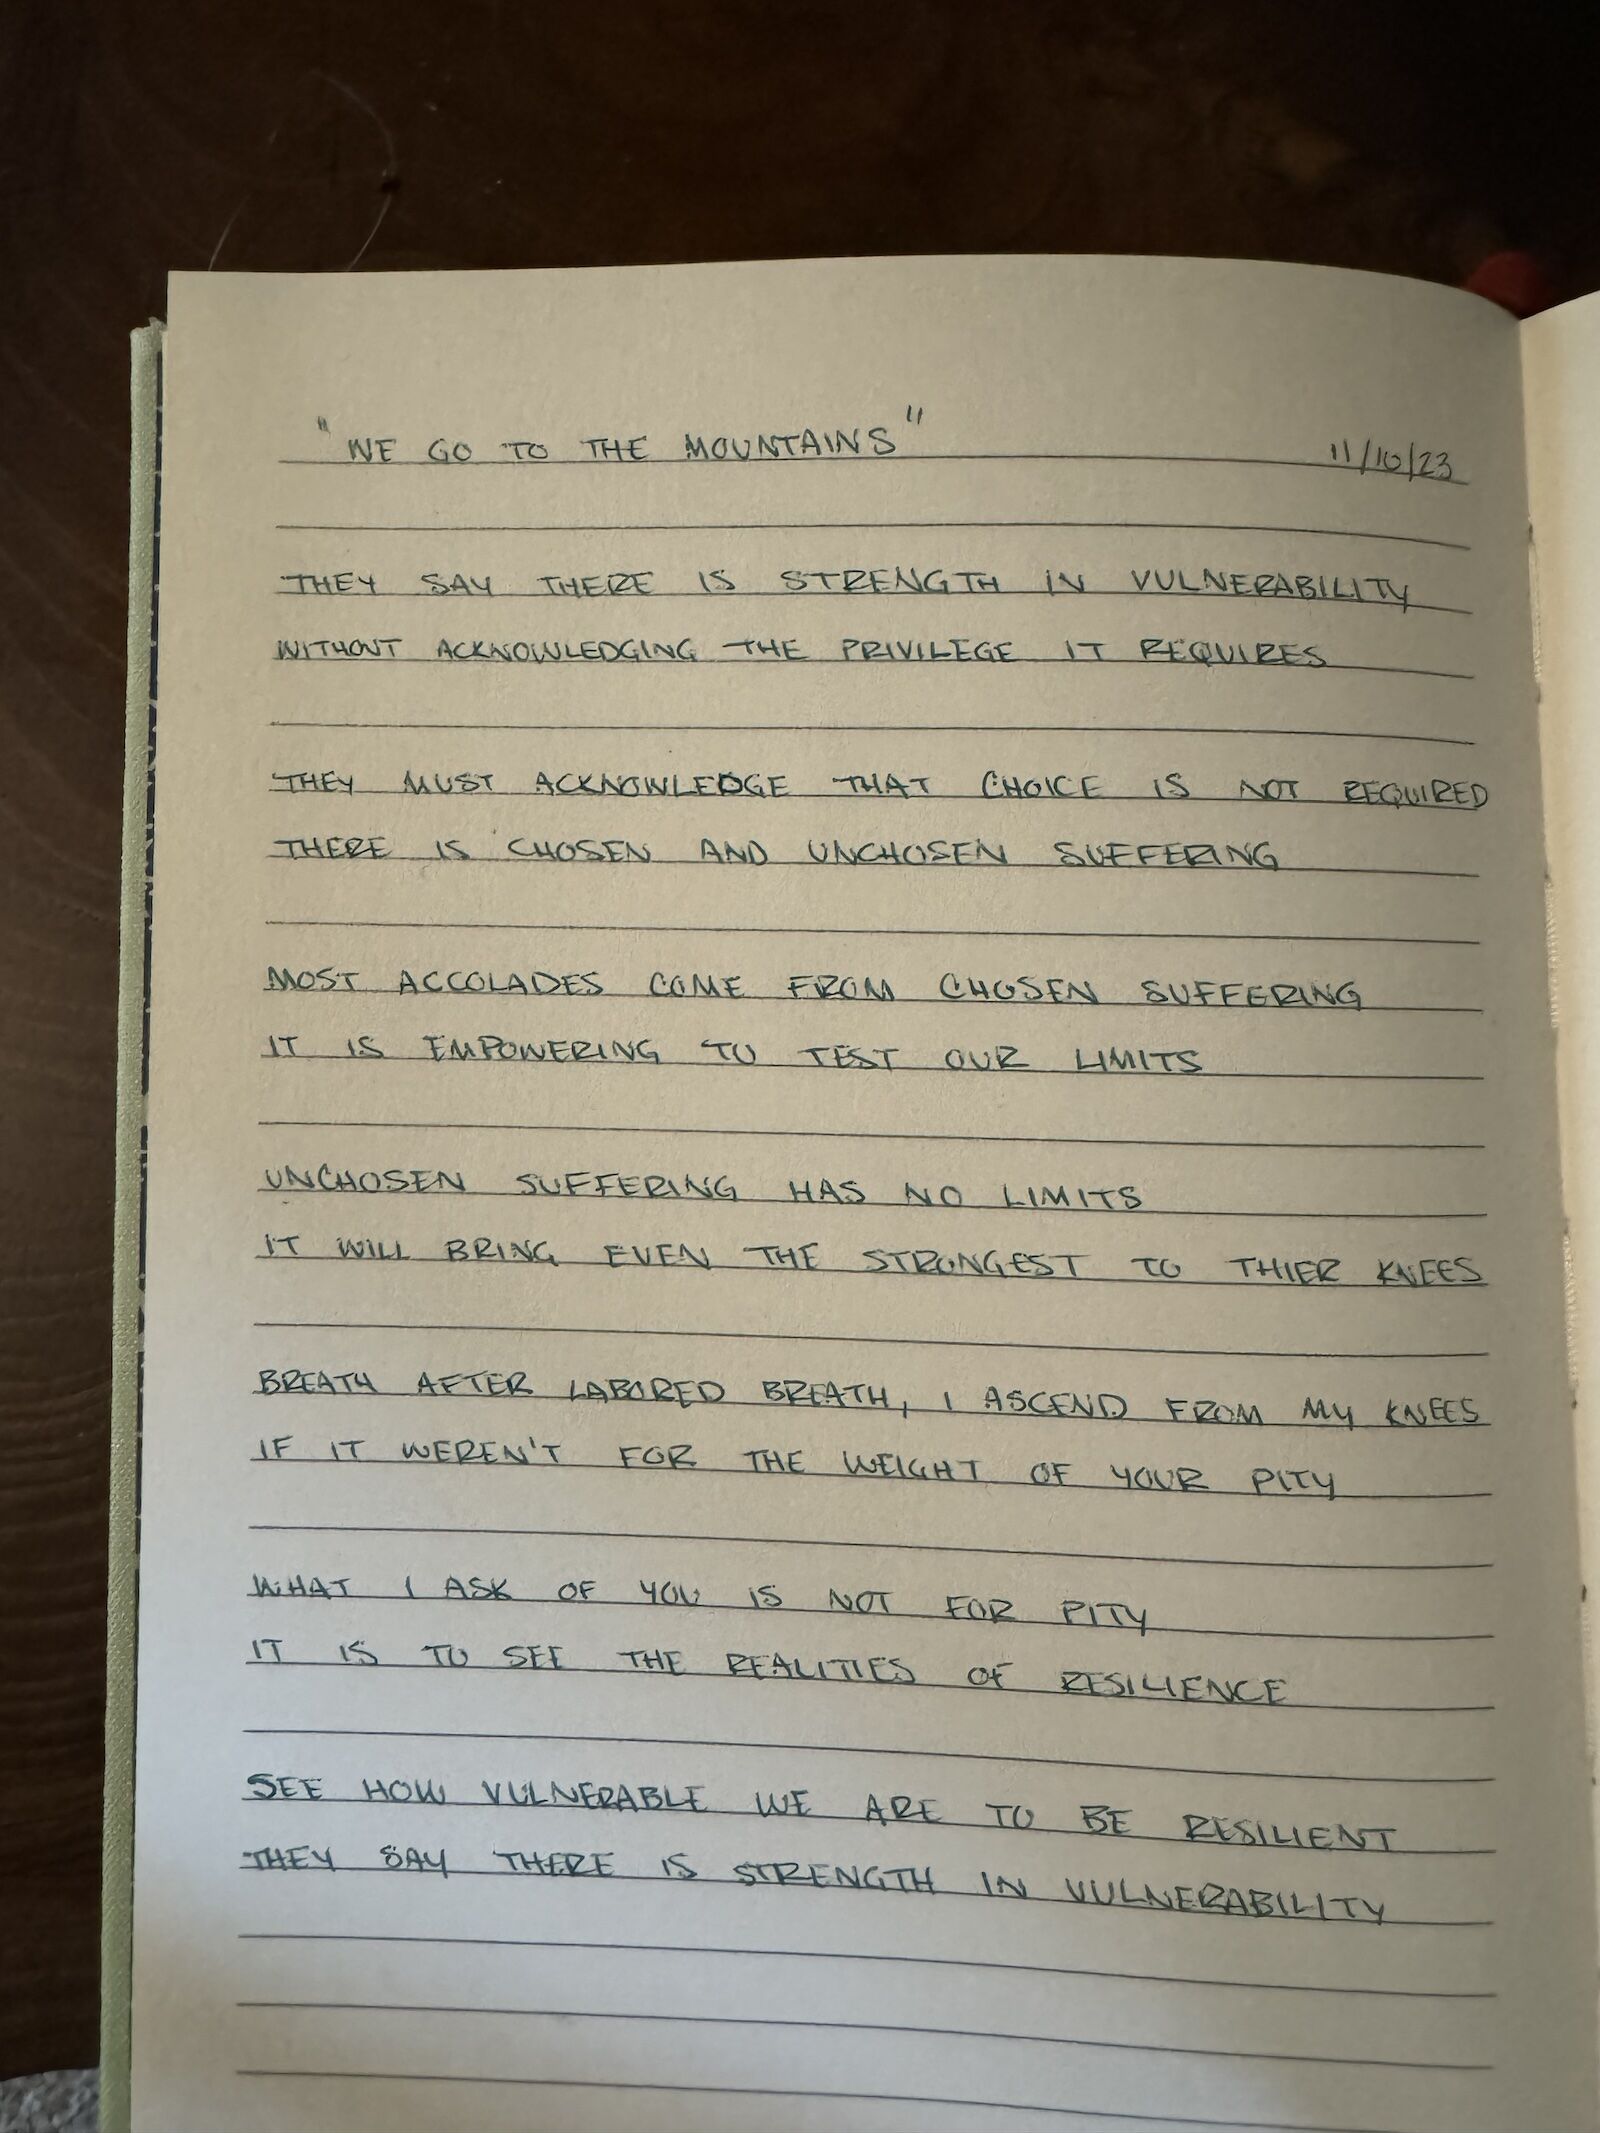 "WE GO TO THE MOUNTAINS" 11/10/23
THEY SAY THERE IS STRENGTH IN VULNERABILITY
WITHOUT ACKNOWLEDGING THE PRIVILEGE IT REQUIRES
THEY MUST ACKNOWLEDGE THAT CHOICE IS NOT REQUIRED
THERE IS CHOSEN AND UNCHOSEN SUFFERING
MOST ACCOLADES COME FROM CHOSEN SUFFERING
IT IS EMPOWERING TO TEST OUR LIMITS
UNCHOSEN SUFFERING HAS NO LIMITS
IT WILL BRING EVEN THE STRONGEST TO THIER KNEES
BREATH AFTER LABORED BREATH, I ASCEND FROM MY KNEES
IF IT WEREN'T FOR THE WEIGHT OF YOUR PITY
WHAT I ASK OF YOU IS NOT FOR PITY
IT IS TO SEE THE REALITIES OF RESILIENCE
SEE HOW VULNERABLE WE ARE TO BE RESILIENT
THEY SAY THERE IS STRENGTH IN VULNERABILITY